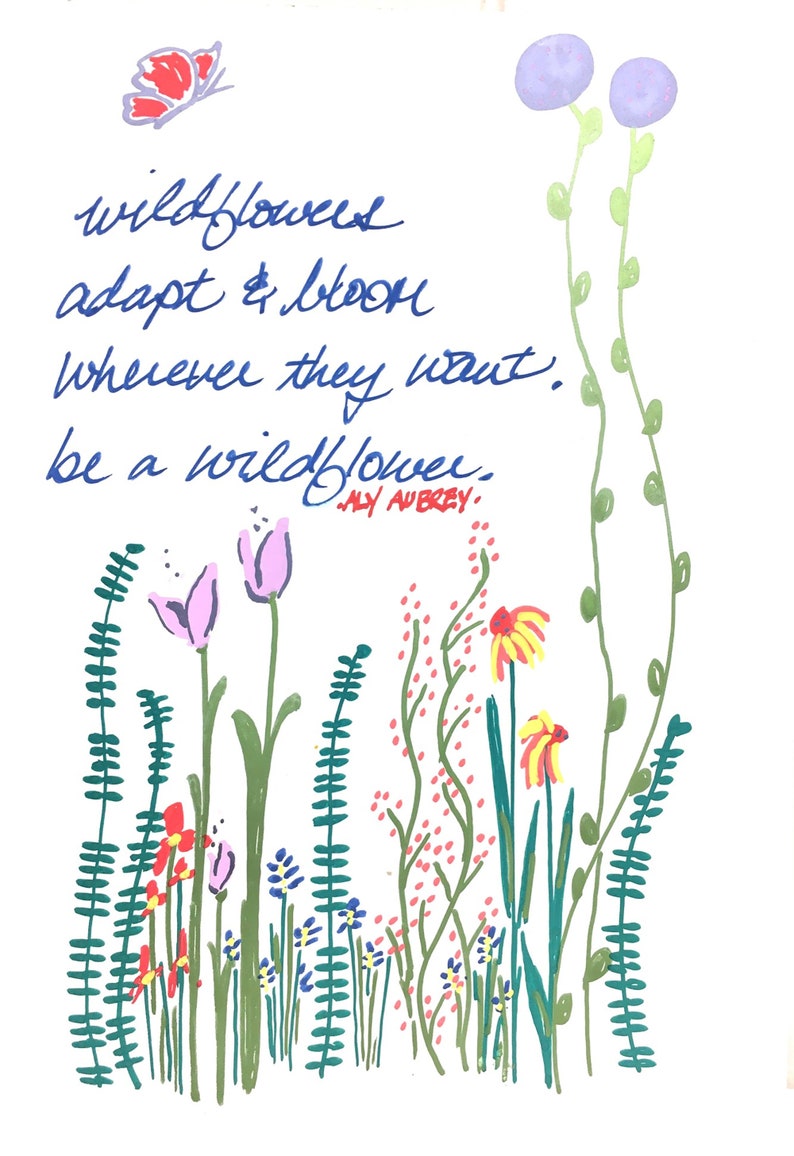 wildflowers
adapt & bloom
wherever they want.
be a wildflower.
.ALY AUBREY.